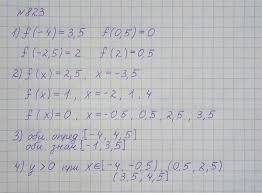 №823
1) f(-4) = 3,5 f(0,5) = 0
f(-2,5) = 2 f(2) = 0,5
2) f(x) = 2,5, x = -3,5
f(x) = 1, x = -2, 1, 4
f(x) = 0, x = -0,5, 0,5, 2,5, 3,5
3) обл. опред [-4, 4,5]
обл. знач [-1, 3,5]
4) y > 0 при x ∈ [-4, -0,5) (0,5, 2,5)
(3,5, 4,5]